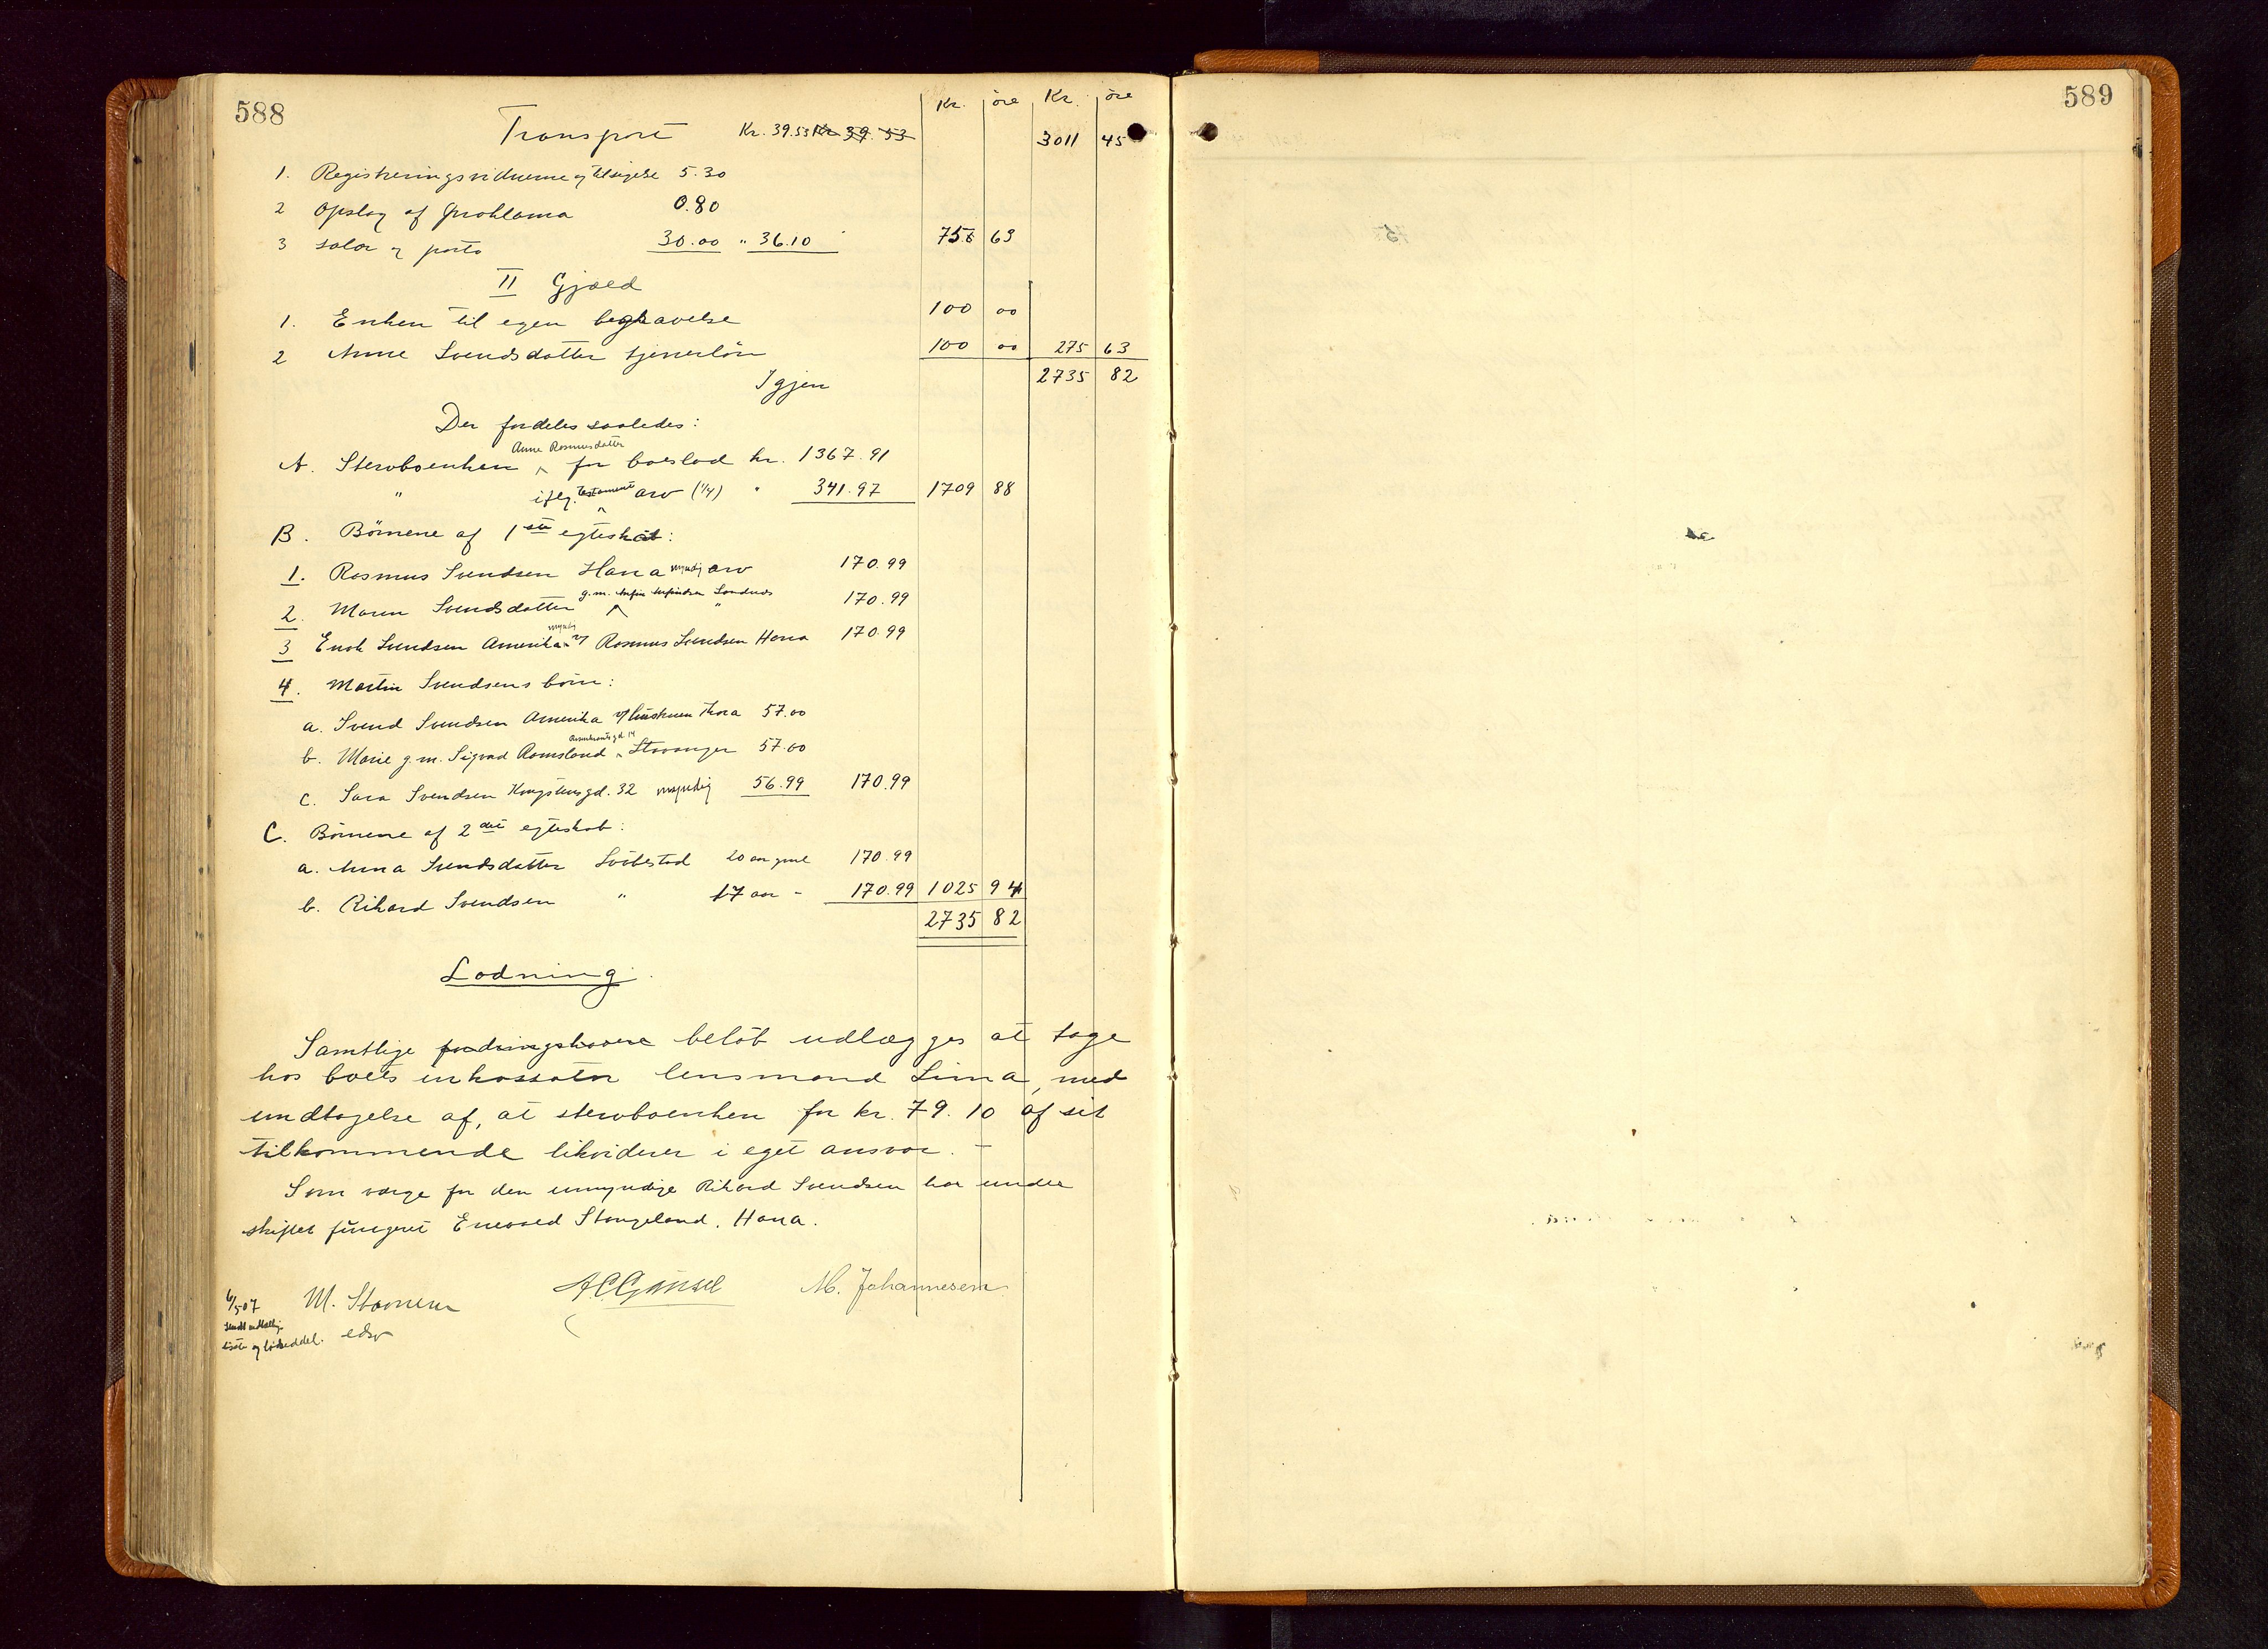 588
Kr. øre Kr. øre
Transport Kr. 39.53 Kr. 39.53 3011 45
1. Registreringsvidnerne og tilsigelse 5.30
2 Opslag af proklama 0.80
3 salær og porto 30.00 " 36.10 75. 63
II Gjæld
1. Enken til egen begravelse 100 00
2 Anne Svendsdatter tjenerløn 100 00 275 63
Igjen 2735 82
Der fordeles saaledes:
Anne Rasmusdatter
A. Stervboenken for boeslod kr. 1367.91
" iflg. testament arv (1/4) " 341.97 1709 88
B. Börnene af 1ste egteskab:
1. Rasmus Svendsen Hana myndig arv 170.99
2. Maren Svendsdatter g.m. " 170.99
3 Enok Svendsen Amerika myndig v/ Rasmus Svendsen Hana 170.99
4. Martin Svendsens börn:
a. Svend Svendsen Amerika v/ Thora 57.00
b. Marie g.m. Sigvad Ramsland Stavanger 57.00
c. Sara Svendsen Kongstensgd. 32 myndig 56.99 170.99
C. Börnene af 2det egteskab:
a. Anna Svendsdatter 20 aar gml 170.99
b. Rikard Svendsen " 17 aar - 170.99 1025 94
2735 82
Lodning.
Samtlige fordringshavere beløb udlægges at tage
hos boets inkassator lensmand Lima, med
undtagelse af, at stervboenken for kr. 79.10 af sit
tilkommende likviderer i eget ansvar. -
Som værge for den umyndige Rikard Svendsen har under
skiftet fungeret Enevald Stangeland, Hana.
6/5 07 M. M. Johannesen
edsv
589